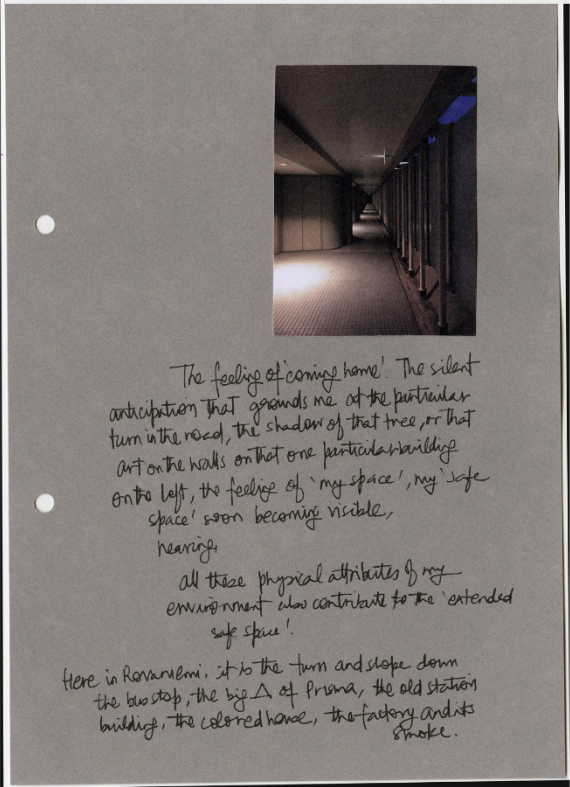 The feeling of 'coming home'. The silent
anticipation that grounds me at the particular
turn in the road, the shadow of that tree, or that
art on the walls on that one particular building
on the left, the feeling of 'my space', my 'safe
space' soon becoming visible,
nearing,
all these physical attributes of my
environment also contribute to the 'extended
safe space'.
Here in Rovaniemi, it is the turn and slope down
the bus stop, the big △ of Prisma, the old station
building, the colored house, the factory and its
smoke.